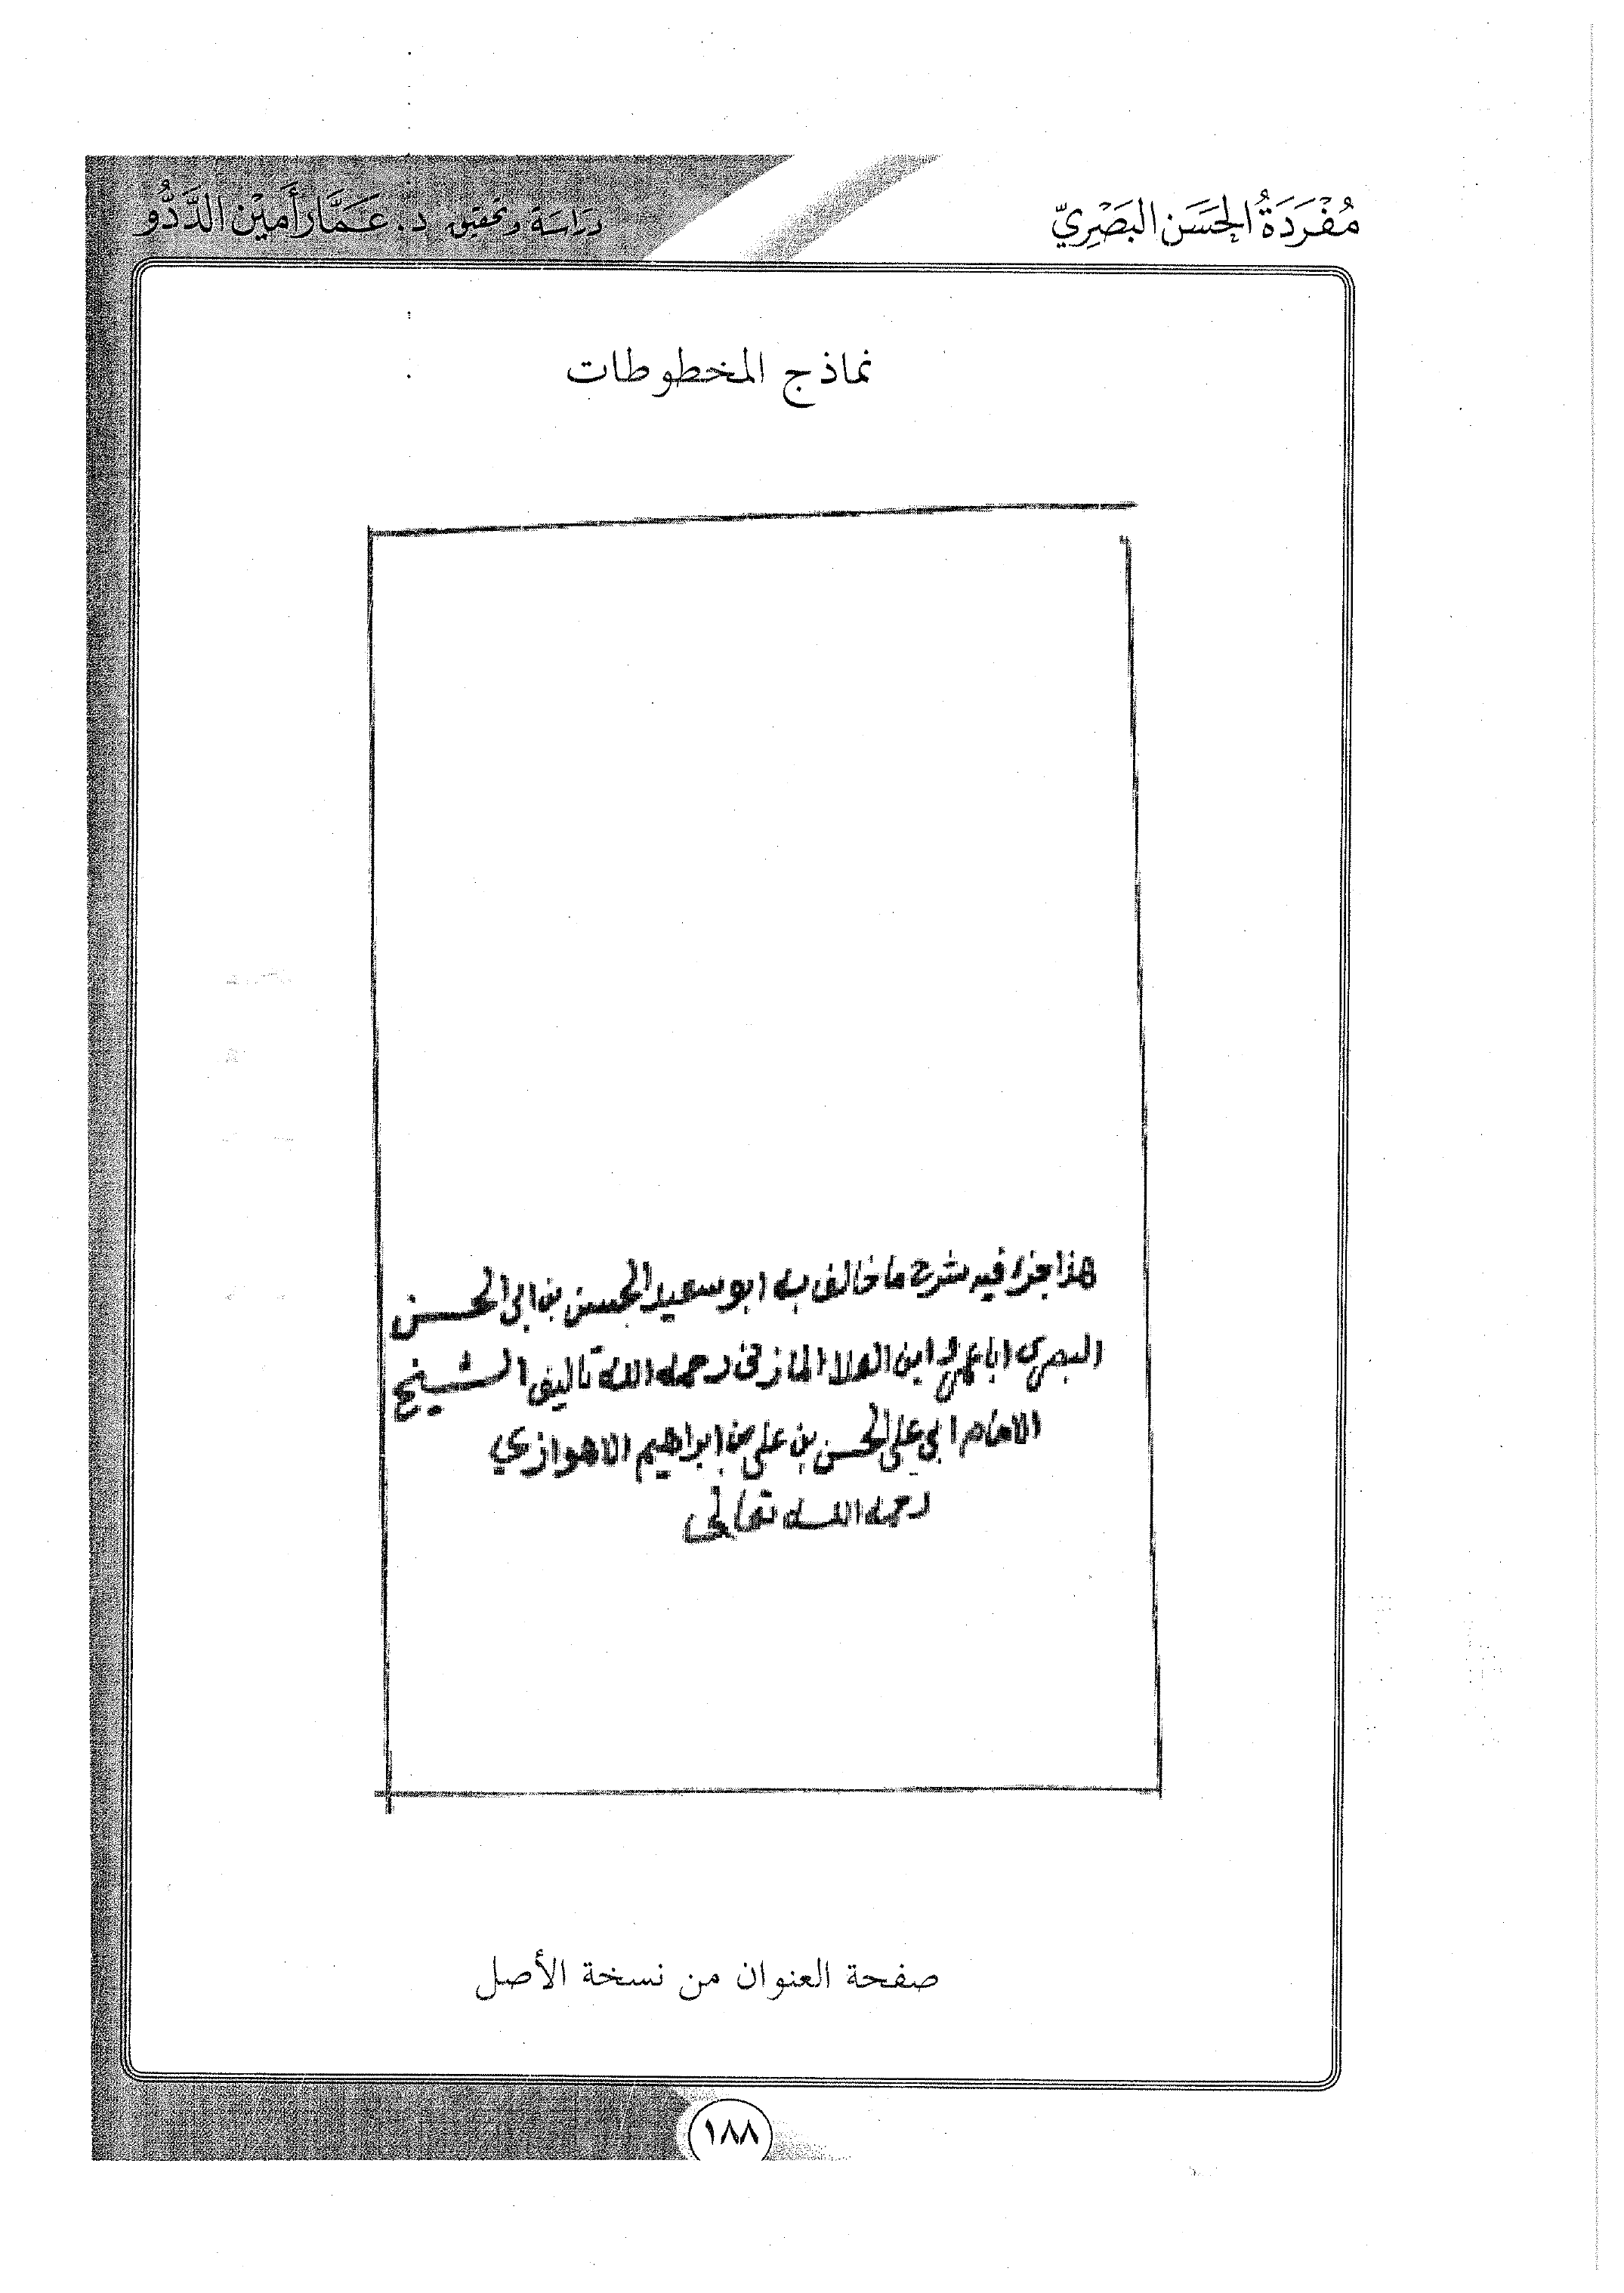 مُفْرَدَةُ الحَسَن البَصْرِيّ
دراسة وتحقيق د. عَمَّار أَمِيْن الدَّدُّو
نماذج المخطوطات
هذا جزء فيه شرح ما خالف به ابو سعيد الحسن بن ابى الحسن
البصري ابا عمرو ابن العلا المازنى رحمه الله تاليف الشيخ
الامام ابي على الحسن بن على بن ابراهيم الاهوازي
رحمه الله تعالى
صفحة العنوان من نسخة الأصل
١٨٨